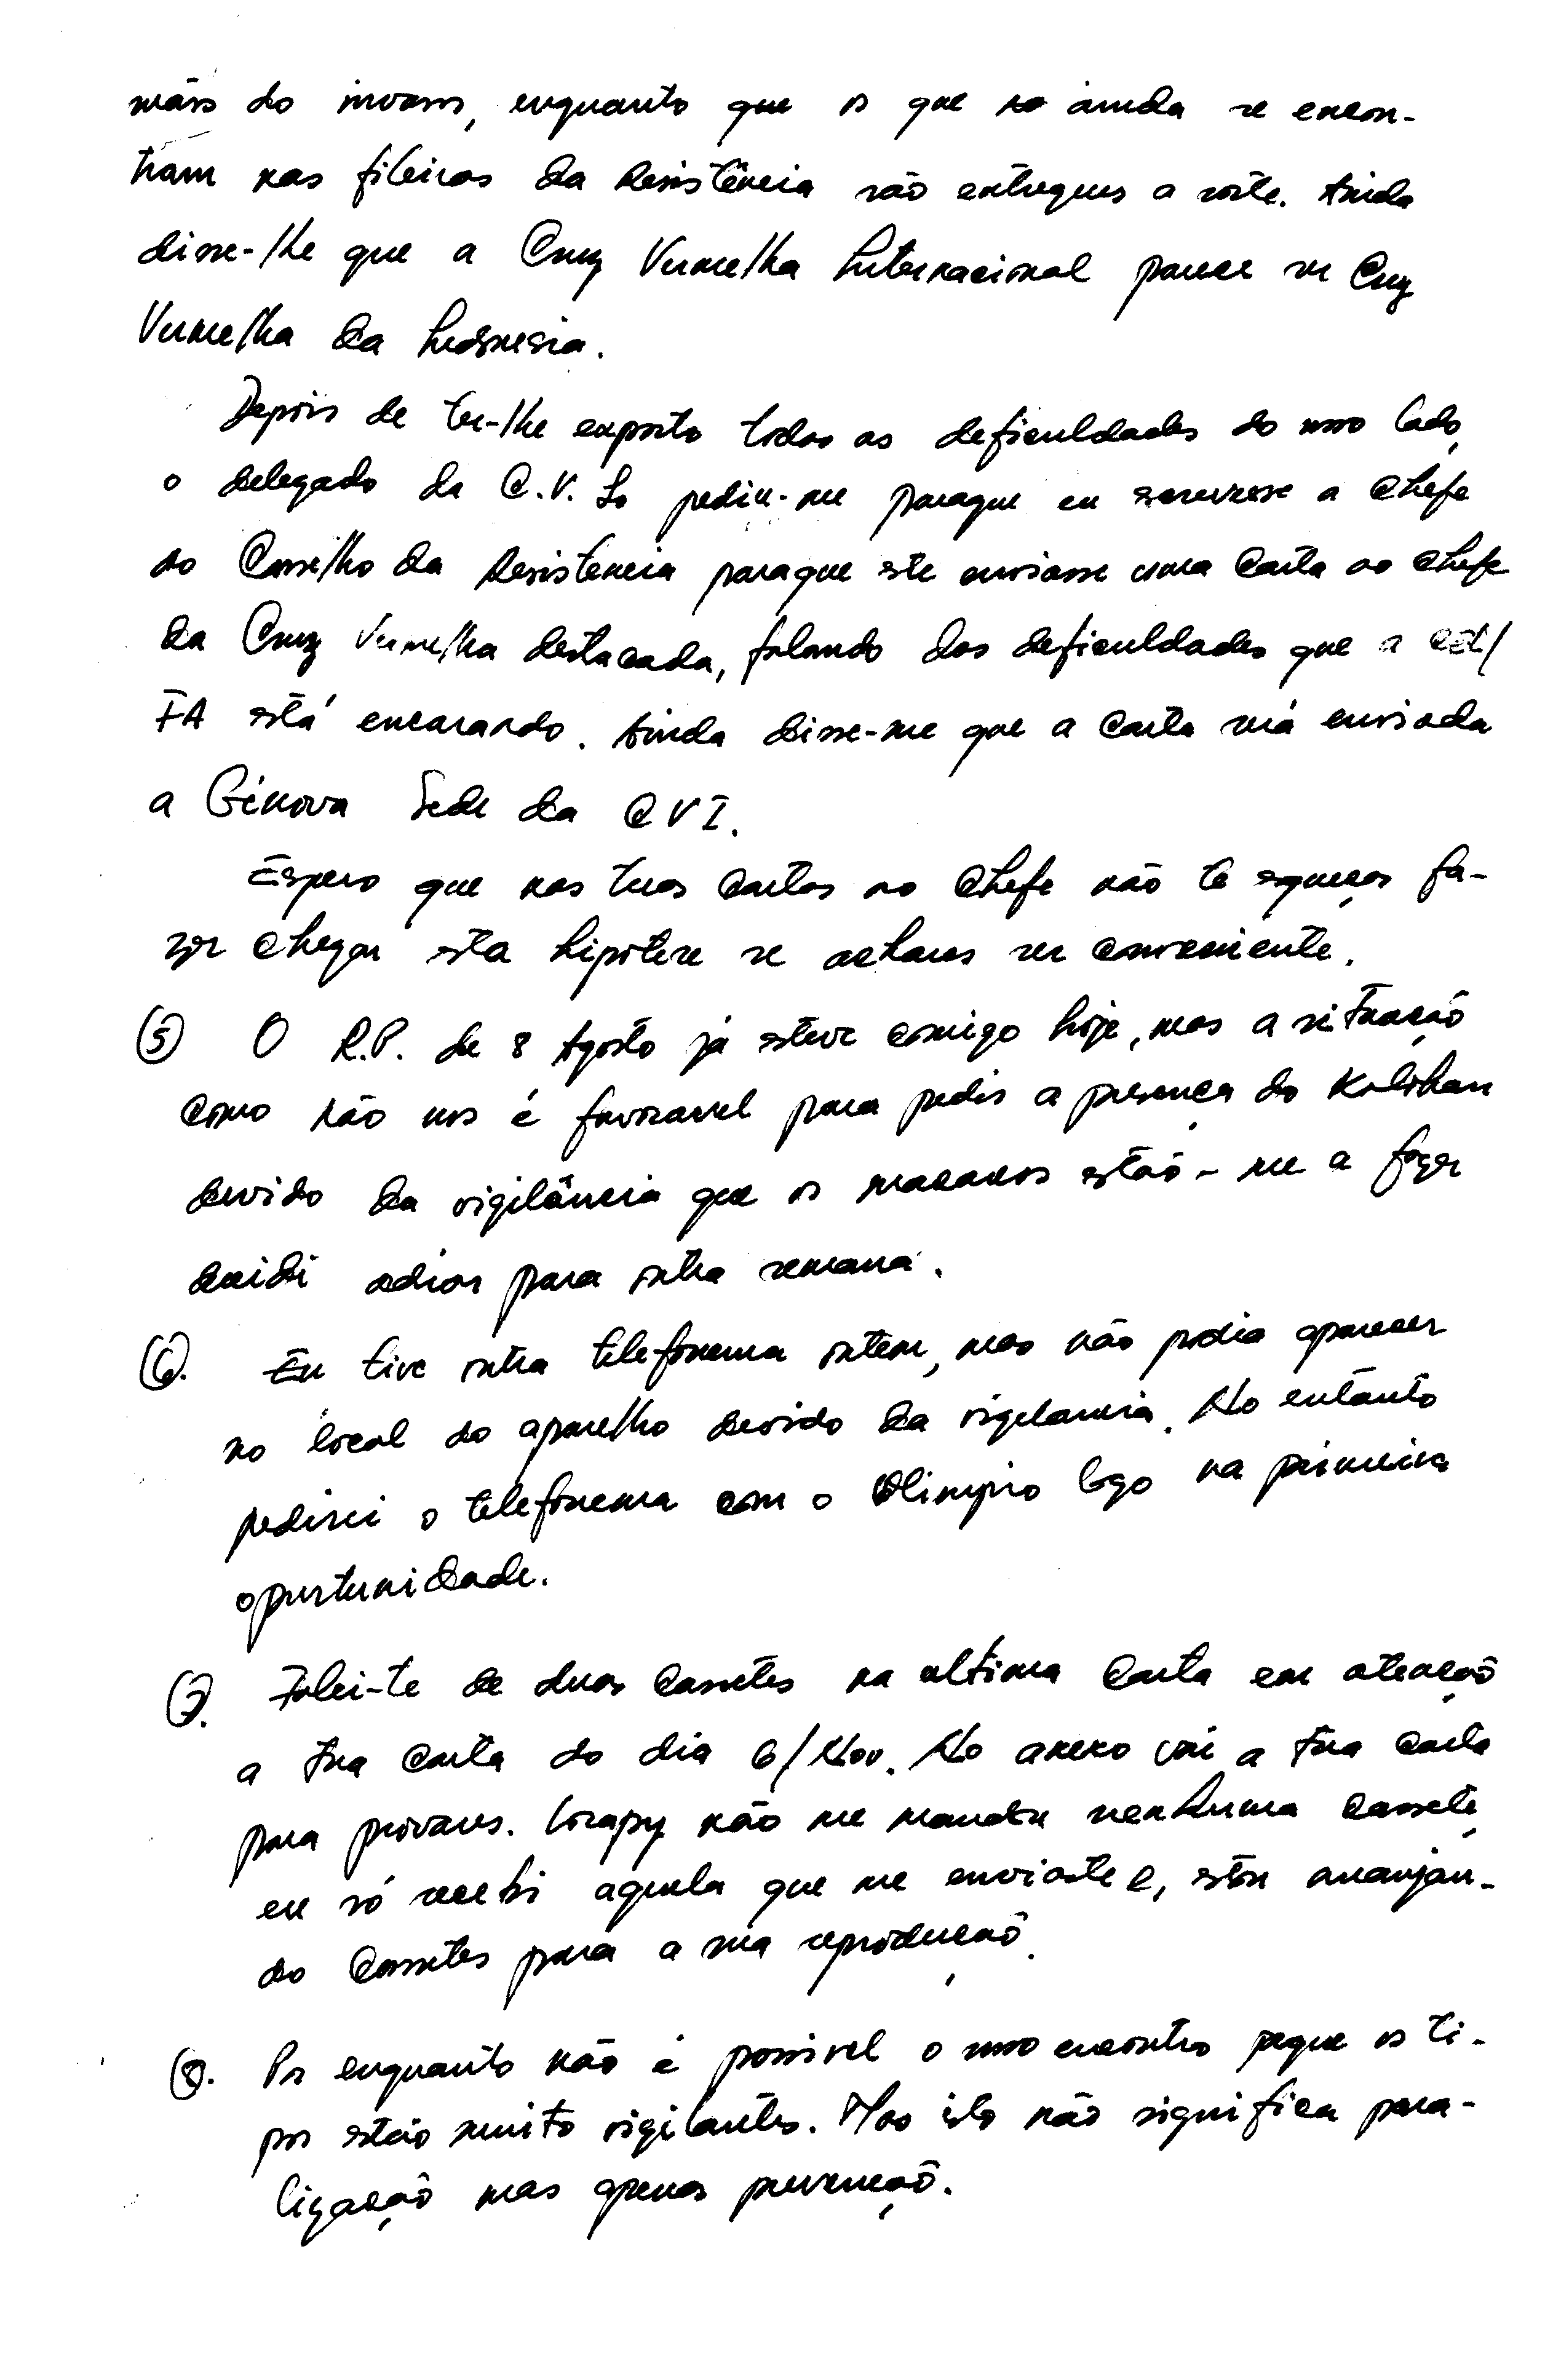 mãos do invasor, enquanto que os que ainda se encon-
tram nas fileiras da Resistência são entregues a sorte. Ainda
disse-lhe que a Cruz Vermelha Internacional parece ser Cruz
Vermelha da Indonesia.
Depois de ter-lhe exposto todas as deficuldades do nosso lado,
o delegado da C.V. pediu-me paraque eu escrevesse a Chefe
do Conselho da Resistencia paraque este enviasse uma Carta ao Chefe
da Cruz Vermelha destacada, falando das deficuldades que a
FA está encarando. Ainda disse-me que a Carta será enviada
a Génova Sede da CVI.
Espero que nas tuas Cartas ao Chefe não te esqueças fa-
zer chegar esta hipotese se achares ser conveniente.
(5) O R.P. de 8 Agosto já esteve comigo hoje, mas a situação
como não nos é favoravel para pedir a presença do Kalohan
devido da vigilância que os macacos estão-me a fazer
decidi adiar para outra semana.
(6). Eu tive outra telefonema ontem, mas não podia aparecer
no local do aparelho devido da vigilancia. No entanto
pedirei o telefonema com o Olimpio logo na primeira
oportunidade.
(7. Falei-te de duas Cassetes na ultima Carta em atenção
a tua Carta do dia 6/Nov. No anexo vai a tua Carta
para provares. Lorapy não me mandou nenhuma Cassete,
eu só recebi aquela que me enviaste e, estou arranjan-
do Cassetes para a sua reprodução.
(8). Por enquanto não é possivel o nosso encontro porque os ti-
pos estão muito vigilantes. Mas isto não significa para-
lização mas apenas prevenção.